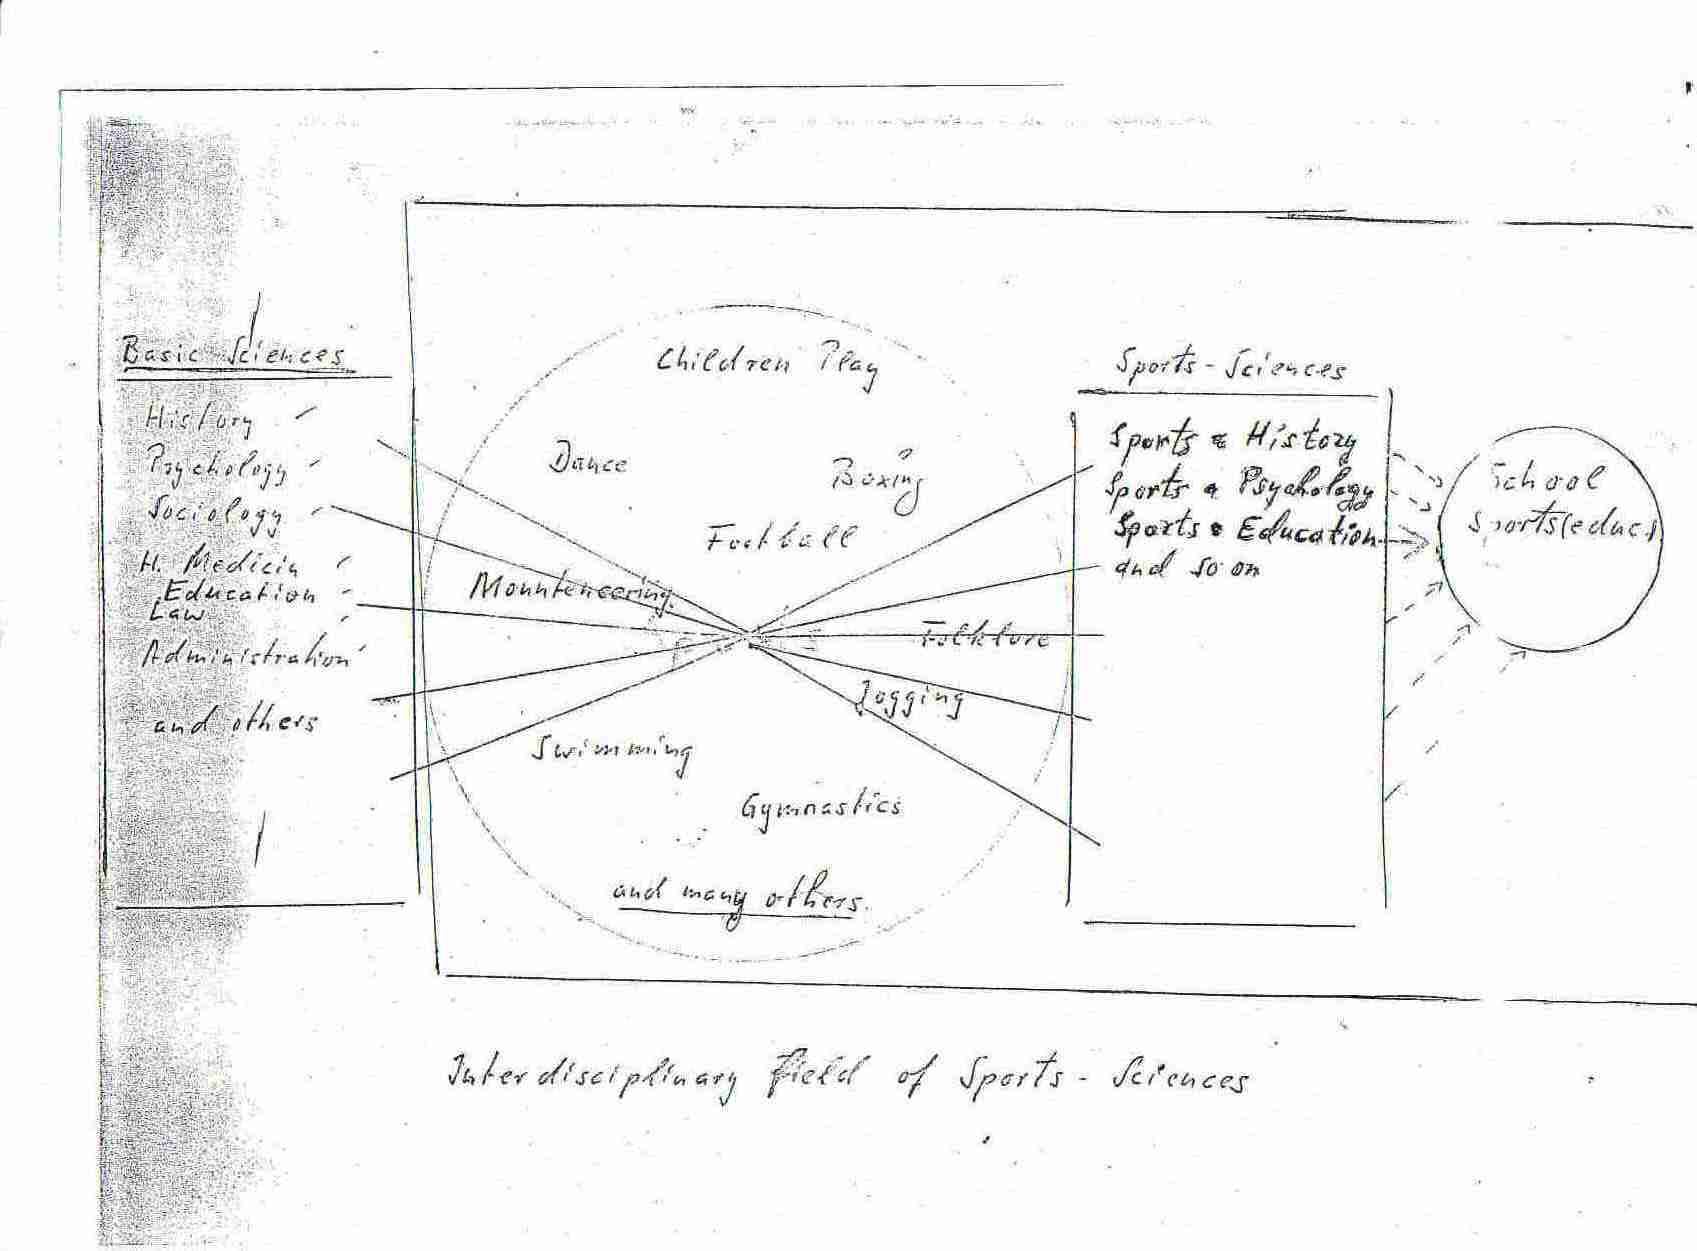 Basic Sciences
History
Psychology
Sociology
H. Medicin
Education
Law
Administration
and others
Children Play
Dance
Boxing
Football
Mounteneering
Folklore
Jogging
Swimming
Gymnastics
and many others.
Sports-Sciences
Sports & History
Sports & Psychology
Sports & Education
and so on
School
Sports(educ)
Interdisciplinary field of Sports-Sciences